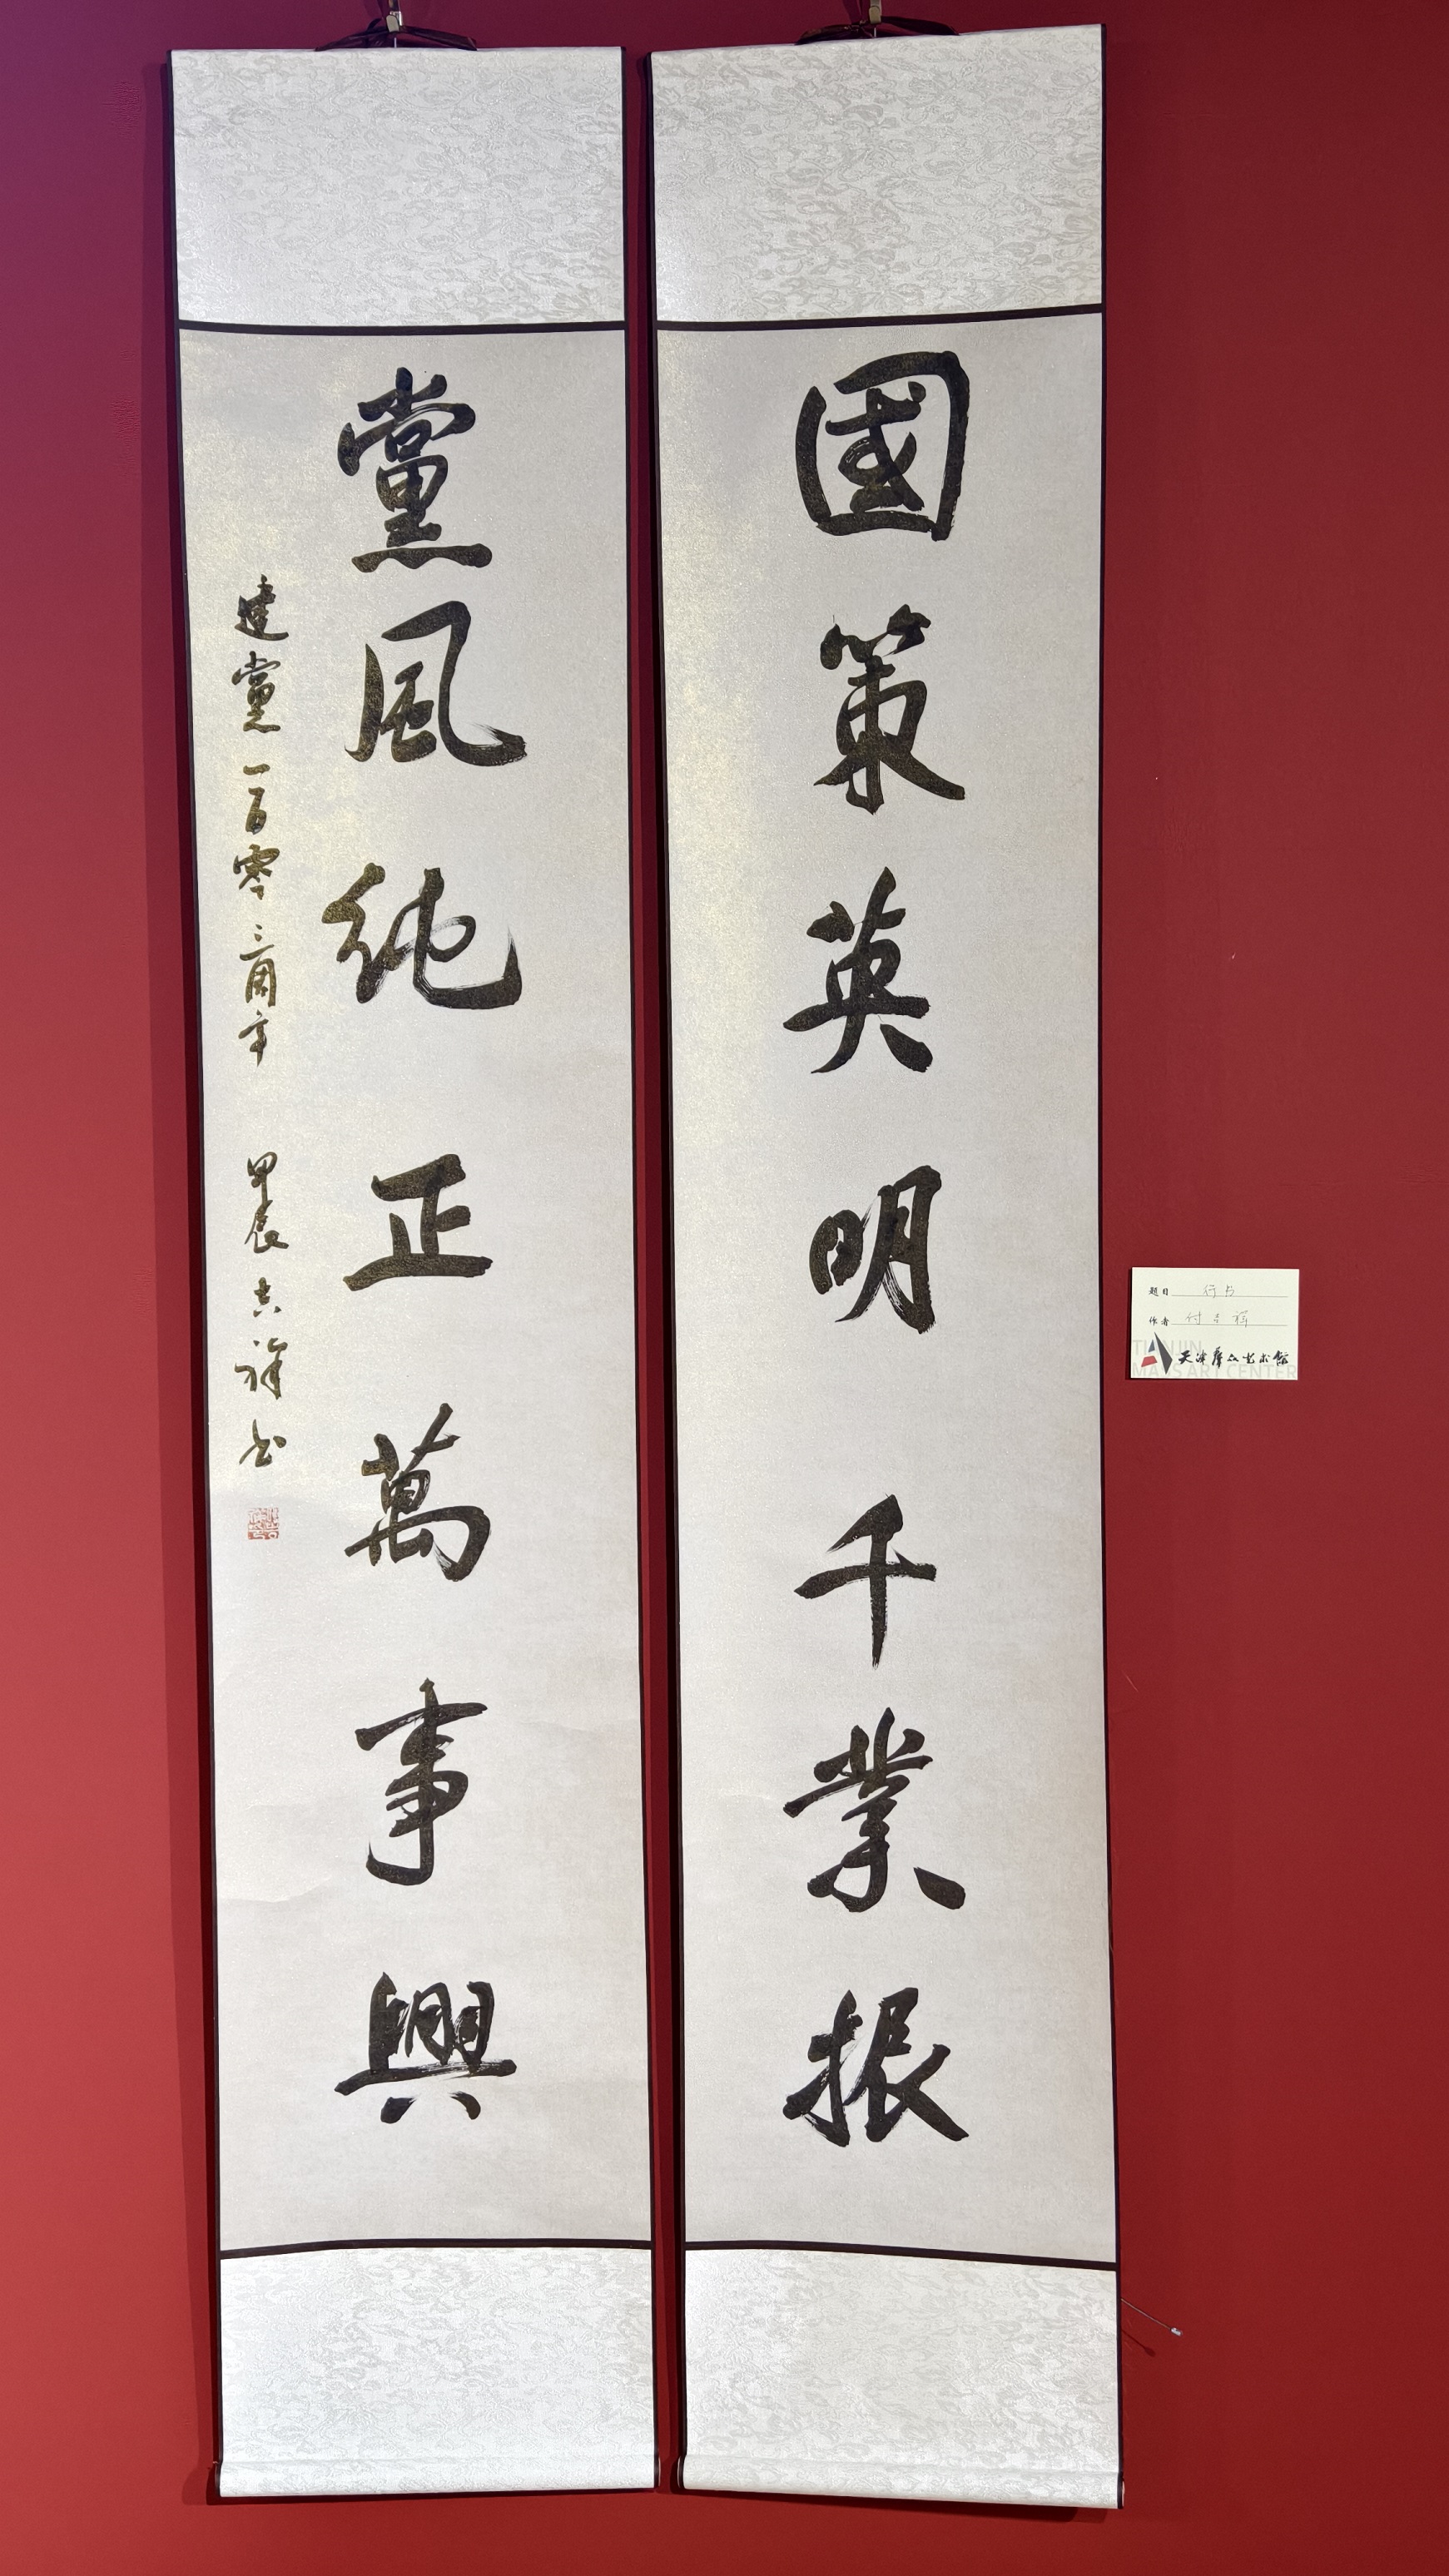 國策英明千業振
黨風純正萬事興
建黨一百零三周年 甲辰 吉祥书
题目 行书
作者 付吉祥
天津群众艺术馆
TIANJIN
MASS ART CENTER